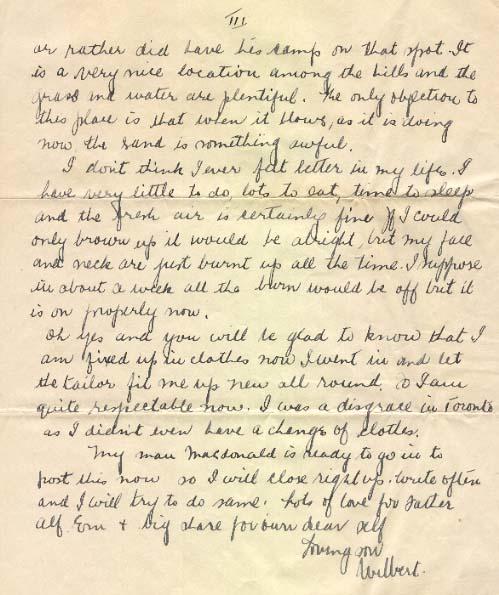 III
or rather did have his camp on that spot. It
is a very nice location among the hills and the
grass and water are plentiful. The only objection to
this place is that when it blows, as it is doing
now the sand is something awful.
I don't think I ever felt better in my life. I
have very little to do, lots to eat, time to sleep
and the fresh air is certainly fine If I could
only brown up it would be alright, but my face
and neck are just burnt up all the time. I suppose
in about a week all the burn would be off but it
is on properly now.
Oh yes and you will be glad to know that I
am fixed up in clothes now I went in and let
the tailor fit me up new all round, & I am
quite respectable now. I was a disgrace in Toronto
as I didn't even have a change of clothes.
My man Macdonald is ready to go in to
post this now so I will close right up. Write often
and I will try to do same. Lots of love for
Alf. Ern + big share for own dear self
Loving son
Wilbert.